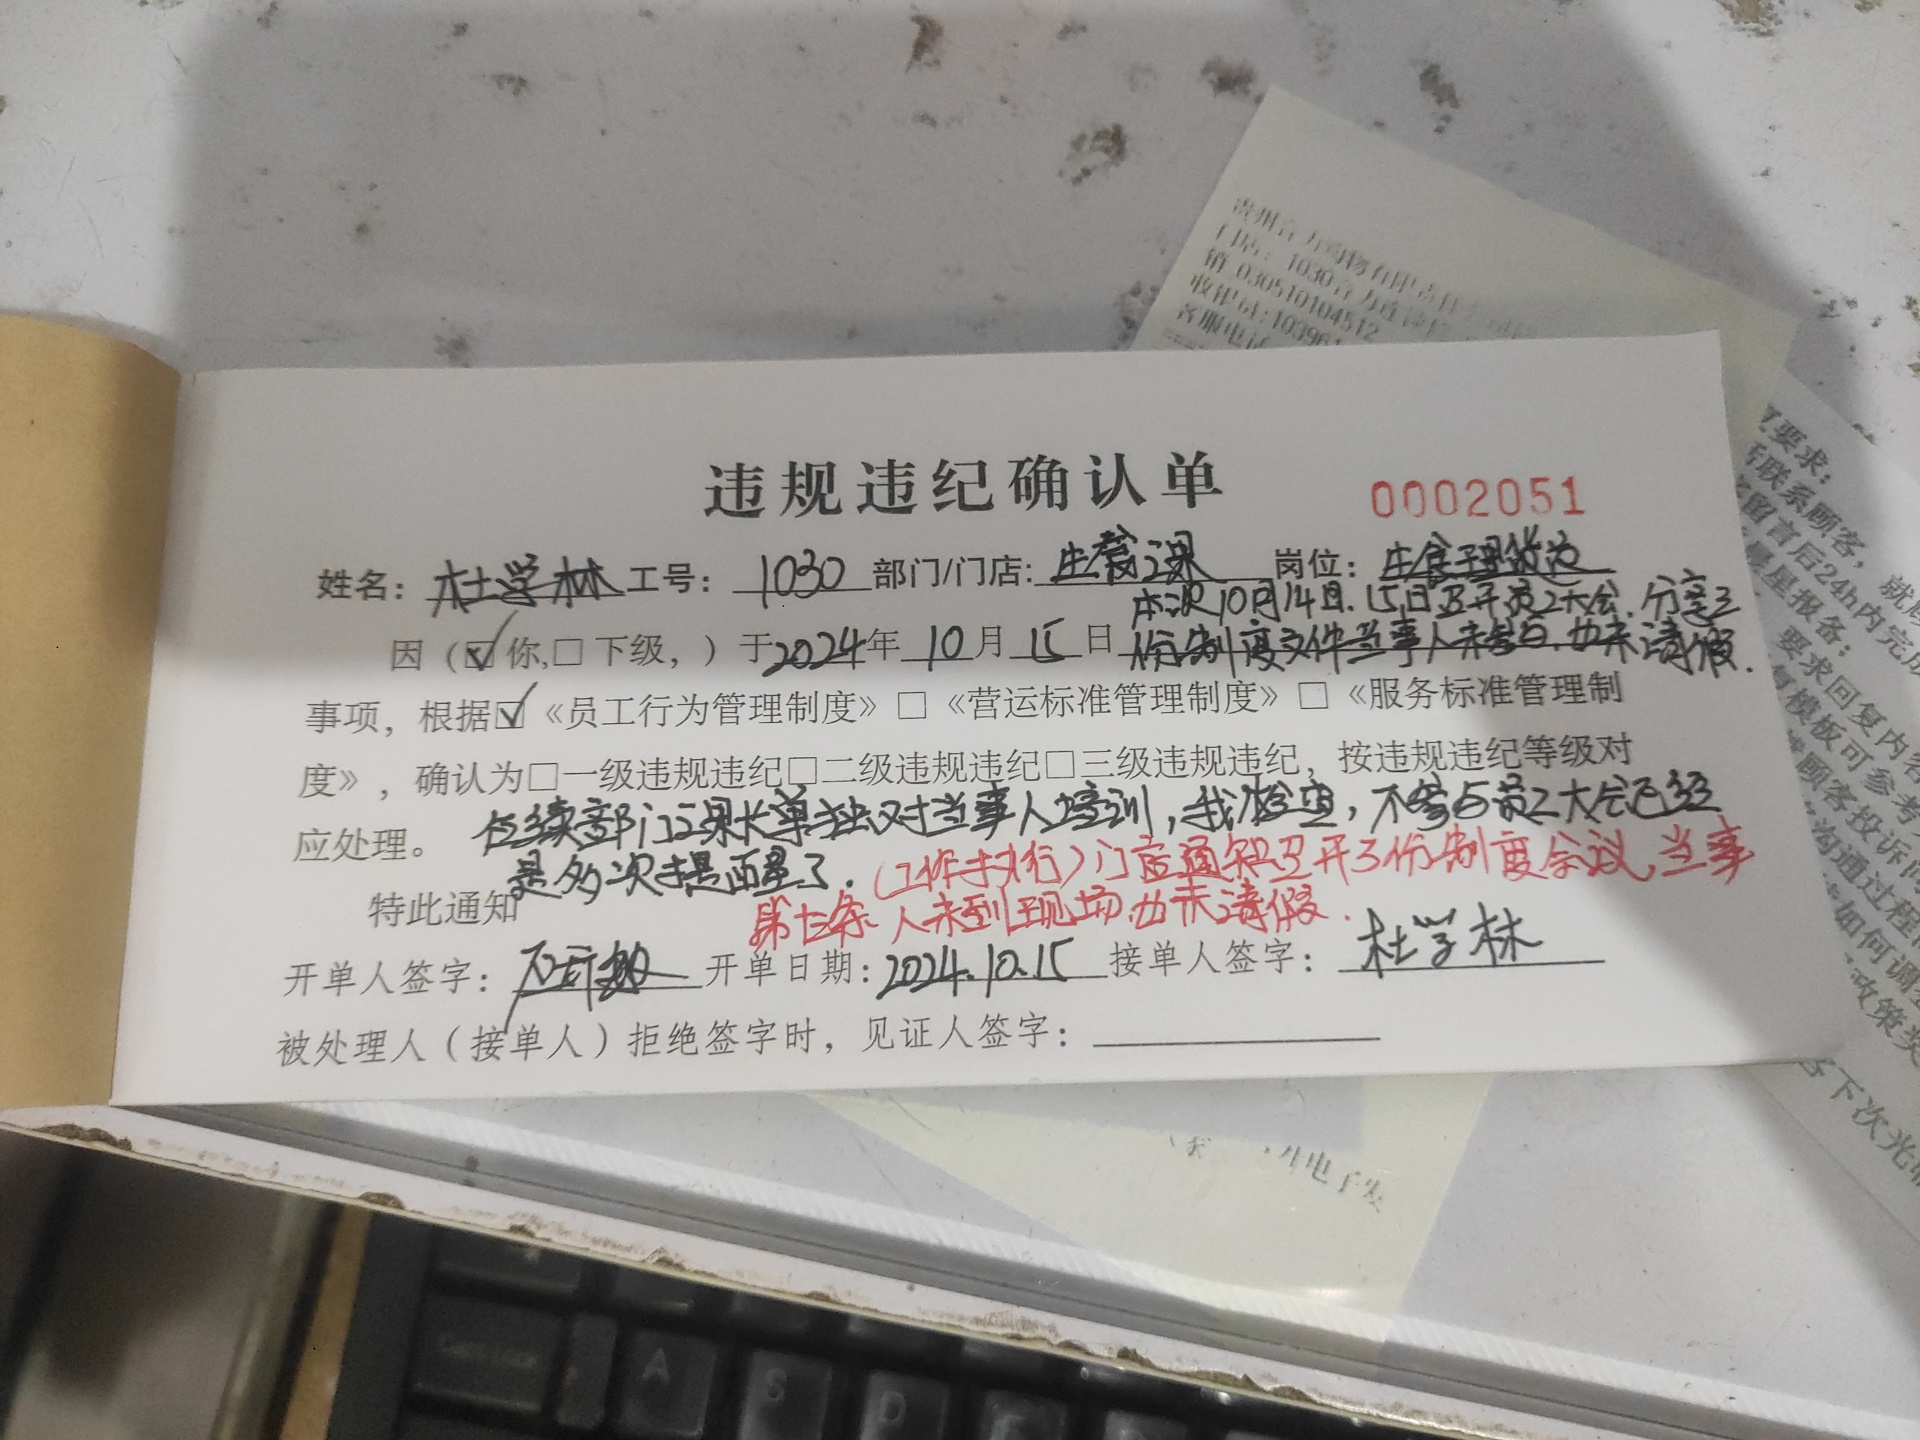 违规违纪确认单
0002051
姓名：杜学林 工号：1030 部门/门店: 生食课 岗位：生食理货员
本次10月14日.15日召开员工大会.分享三
因（☑你,□下级，）于2024年10月15日 份制度文件当事人未参与.也未请假.
事项，根据☑《员工行为管理制度》□《营运标准管理制度》□《服务标准管理制
度》，确认为□一级违规违纪□二级违规违纪□三级违规违纪，按违规违纪等级对
应处理。 后续部门课长单独对当事人培训，我检查，不参与员工大会已经
是多次提醒了.（工作执行）门店通知召开3份制度会议,当事
特此通知 第七条 人未到现场.也未请假.
开单人签字： 开单日期：2024.10.15 接单人签字：杜学林
被处理人（接单人）拒绝签字时，见证人签字：
门店：1030
销 030510104512
收银员:10396
客服电话
要求：
联系顾客，就
留言后24h内完成
星报备；
要求回复内容
复模板可参考
顾客投诉问
沟通过程
如何调
政策奖
下次光临
电子发
A
S
D